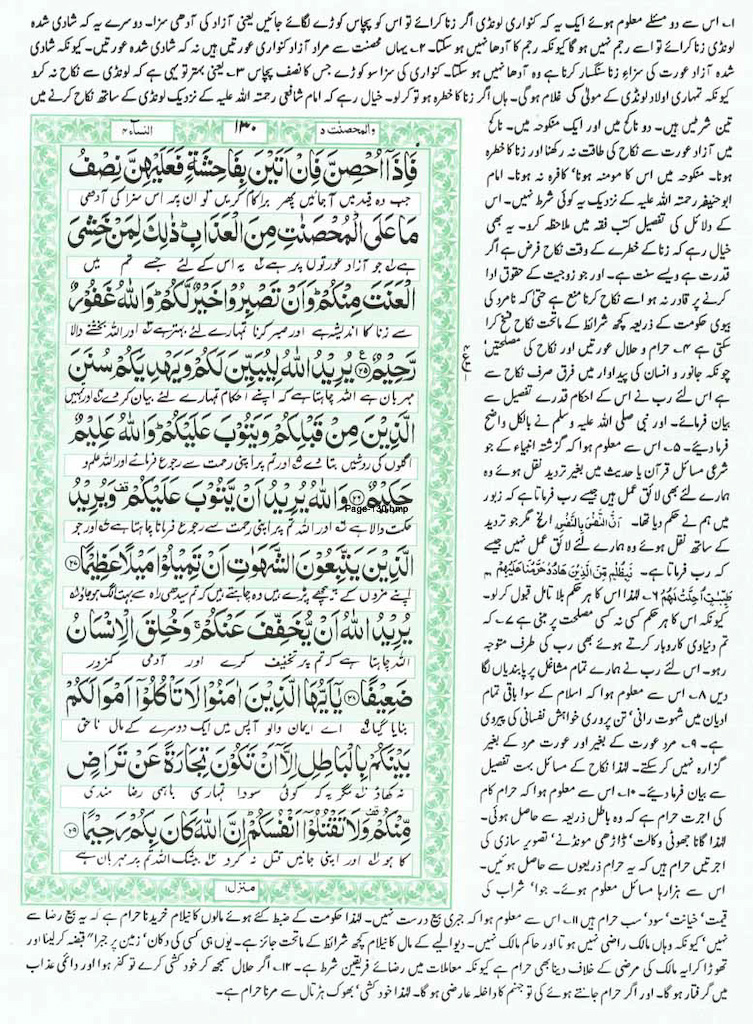 ۱؎ اس سے دو مسئلے معلوم ہوئے ایک یہ کہ کنواری لونڈی اگر زنا کرائے تو اس کو پچاس کوڑے لگائے جائیں یعنی آزاد کی آدھی سزا۔ دوسرے یہ کہ شادی شدہ
لونڈی زنا کرائے تو اسے رجم نہیں ہو گا کیونکہ رجم کا آدھا نہیں ہو سکتا۔ ۲؎ یہاں محصنت سے مراد آزاد کنواری عورتیں ہیں نہ کہ شادی شدہ عورتیں۔ کیونکہ شادی
شدہ آزاد عورت کی سزاء زنا سنگسار کرنا ہے وہ آدھا نہیں ہو سکتا۔ کنواری کی سزا سو کوڑے جس کا نصف پچاس ۳؎ یعنی بہتر تو یہی ہے کہ لونڈی سے نکاح نہ کرو
کیونکہ تمہاری اولاد لونڈی کے مولیٰ کی غلام ہوگی۔ ہاں اگر زنا کا خطرہ ہو تو کر لو۔ خیال رہے کہ امام شافعی رحمتہ اللہ علیہ کے نزدیک لونڈی کے ساتھ نکاح کرنے میں
تین شرطیں ہیں۔ دو ناکح میں اور ایک منکوحہ میں۔ ناکح
میں آزاد عورت سے نکاح کی طاقت نہ رکھنا اور زنا کا خطرہ
ہونا۔ منکوحہ میں اس کا مومنہ ہونا کافرہ نہ ہونا۔ امام
ابو حنیفہ رحمتہ اللہ علیہ کے نزدیک یہ کوئی شرط نہیں۔ اس
کے دلائل کی تفصیل کتب فقہ میں ملاحظہ کرو۔ یہ بھی
خیال رہے کہ زنا کے خطرے کے وقت نکاح فرض ہے اگر
قدرت ہے ویسے سنت ہے۔ اور جو زوجیت کے حقوق ادا
کرنے پر قادر نہ ہو اسے نکاح کرنا منع ہے حتیٰ کہ نامرد کی
بیوی حکومت کے ذریعہ کچھ شرائط کے ماتحت نکاح فسخ کرا
سکتی ہے ۴؎ حرام و حلال عورتیں اور نکاح کی مصلحتیں'
چونکہ جانور و انسان کی پیداوار میں فرق صرف نکاح سے
ہے اس لئے رب نے اس کے احکام قدرے تفصیل سے
بیان فرمائے۔ اور نبی صلی اللہ علیہ وسلم نے بالکل واضح
فرما دیئے۔ ۵؎ اس سے معلوم ہوا کہ گزشتہ انبیاء کے جو
شرعی مسائل قرآن یا حدیث میں بغیر تردید نقل ہوئے وہ
ہمارے لئے بھی لائق عمل ہیں جیسے رب فرماتا ہے کہ زبور
میں ہم نے حکم دیا تھا۔ اَنَّ النَّفْسَ بِالنَّفْسِ الخ مگر جو تردید
کے ساتھ نقل ہوئے وہ ہمارے لئے لائق عمل نہیں جیسے
کہ رب فرماتا ہے۔ فَبِظُلْمٍ مِّنَ الَّذِیْنَ هَادُوْا حَرَّمْنَا عَلَیْهِمْ
طَیِّبٰتٍ اُحِلَّتْ لَهُمْ ۶؎ لہٰذا اس کا ہر حکم بلا تامل قبول کر لو۔
کیونکہ اس کا ہر حکم کسی نہ کسی مصلحت پر مبنی ہے ۷؎ کہ
تم دنیاوی کاروبار کرتے ہوئے بھی رب کی طرف متوجہ
رہو۔ اس لئے رب نے ہمارے تمام مشاغل پر پابندیاں لگا
دیں ۸؎ اس سے معلوم ہوا کہ اسلام کے سوا باقی تمام
ادیان میں شہوت رانی' تن پروری خواہش نفسانی کی پیروی
ہے۔ ۹؎ مرد عورت کے بغیر اور عورت مرد کے بغیر
گزارہ نہیں کر سکتے۔ لہٰذا نکاح کے مسائل بہت تفصیل
سے بیان فرما دیئے۔ ۱۰؎ اس سے معلوم ہوا کہ حرام کام
کی اجرت حرام ہے کہ وہ باطل ذریعہ سے حاصل ہوئی۔
لہٰذا گانا جھوٹی وکالت' ڈاڑھی مونڈنے' تصویر سازی کی
اجرتیں حرام ہیں کہ یہ حرام ذریعوں سے حاصل ہوئیں۔
اس سے ہزارہا مسائل معلوم ہوئے۔ جوا' شراب کی
والمحصنت ۵ ۱۳۰ النسآء ۴
فَاِذَاۤ اُحْصِنَّ فَاِنْ اَتَیْنَ بِفَاحِشَةٍ فَعَلَیْهِنَّ نِصْفُ
جب وہ قید میں آجائیں پھر برا کام کریں تو ان پر اس سزا کی آدھی
مَا عَلَى الْمُحْصَنٰتِ مِنَ الْعَذَابِ ؕ ذٰلِكَ لِمَنْ خَشِیَ
ہے جو آزاد عورتوں پر ہے یہ اس کے لئے جسے تم میں
الْعَنَتَ مِنْكُمْ ؕ وَاَنْ تَصْبِرُوْا خَیْرٌ لَّكُمْ ؕ وَاللّٰهُ غَفُوْرٌ
سے زنا کا اندیشہ ہے اور صبر کرنا تمہارے لئے بہتر ہے اور اللہ بخشنے والا
رَّحِیْمٌ ۲۵ یُرِیْدُ اللّٰهُ لِیُبَیِّنَ لَكُمْ وَیَهْدِیَكُمْ سُنَنَ
مہربان ہے اللہ چاہتا ہے کہ اپنے احکام تمہارے لئے بیان کر دے اور تمہیں
الَّذِیْنَ مِنْ قَبْلِكُمْ وَیَتُوْبَ عَلَیْكُمْ ؕ وَاللّٰهُ عَلِیْمٌ
اگلوں کی روشیں بتا دے اور تم پر اپنی رحمت سے رجوع فرمائے اور اللہ علم و
حَكِیْمٌ ۲۶ وَاللّٰهُ یُرِیْدُ اَنْ یَّتُوْبَ عَلَیْكُمْ وَیُرِیْدُ
Page-130.bmp
حکمت والا ہے اور اللہ تم پر اپنی رحمت سے رجوع فرمانا چاہتا ہے اور جو
الَّذِیْنَ یَتَّبِعُوْنَ الشَّهَوٰتِ اَنْ تَمِیْلُوْا مَیْلًا عَظِیْمًا ۲۷
اپنے مزوں کے پیچھے پڑے ہیں وہ چاہتے ہیں کہ تم سیدھی راہ سے بہت الگ ہو جاؤ
یُرِیْدُ اللّٰهُ اَنْ یُّخَفِّفَ عَنْكُمْ ۚ وَخُلِقَ الْاِنْسَانُ
اللہ چاہتا ہے کہ تم پر تخفیف کرے اور آدمی کمزور
ضَعِیْفًا ۲۸ یٰۤاَیُّهَا الَّذِیْنَ اٰمَنُوْا لَا تَاْكُلُوْۤا اَمْوَالَكُمْ
بنایا گیا اے ایمان والو آپس میں ایک دوسرے کے مال ناحق
بَیْنَكُمْ بِالْبَاطِلِ اِلَّاۤ اَنْ تَكُوْنَ تِجَارَةً عَنْ تَرَاضٍ
نہ کھاؤ مگر یہ کہ کوئی سودا تمہاری باہمی رضا مندی
مِّنْكُمْ ؕ وَلَا تَقْتُلُوْۤا اَنْفُسَكُمْ ؕ اِنَّ اللّٰهَ كَانَ بِكُمْ رَحِیْمًا ۲۹
کا ہو اور اپنی جانیں قتل نہ کرو بیشک اللہ تم پر مہربان ہے
منزل ۱
قیمت' خیانت' سود' سب حرام ہیں ۱۱؎ اس سے معلوم ہوا کہ جبری بیع درست نہیں۔ لہٰذا حکومت کے ضبط کئے ہوئے مالوں کا نیلام خریدنا حرام ہے کہ یہ بیع رضا سے
نہیں' کیونکہ وہاں مالک راضی نہیں ہوتا اور حاکم مالک نہیں۔ دیوالیے کے مال کا نیلام کچھ شرائط کے ماتحت جائز ہے۔ یوں ہی کسی کی دکان' زمین پر جبراً قبضہ کر لینا اور
تھوڑا کرایہ مالک کی مرضی کے خلاف دینا بھی حرام ہے کیونکہ معاملات میں رضائے فریقین شرط ہے۔ ۱۲؎ اگر حلال سمجھ کر خود کشی کرے تو کفر ہوا اور دائمی عذاب
میں گرفتار ہو گا۔ اور اگر حرام جانتے ہوئے کی تو جہنم کا داخلہ عارضی ہو گا۔ لہٰذا خود کشی' بھوک ہڑتال سے مرنا حرام ہے۔